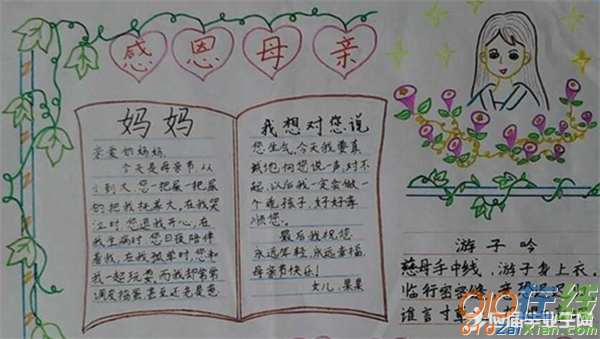 感恩母亲
妈妈
亲爱的妈妈,
今天是母亲节,从
小到大,您一把屎一把尿
的把我抚养大,在我哭
泣时,您逗我开心,在
我生病时,您日夜陪伴
着我,在我孤单时,您和
我一起玩耍,而我却常常
调皮捣蛋,甚至还老是惹
我想对您说
您生气,今天我要真
诚地向您说一声,对不
起,以后我一定会做一
个乖孩子,好好孝
顺您。
最后我祝您
永远年轻,永远幸福,
母亲节快乐!
女儿,果果
游子吟
慈母手中线,游子身上衣。
临行密密缝,意恐
谁言寸草
010在线
010zaixian.com